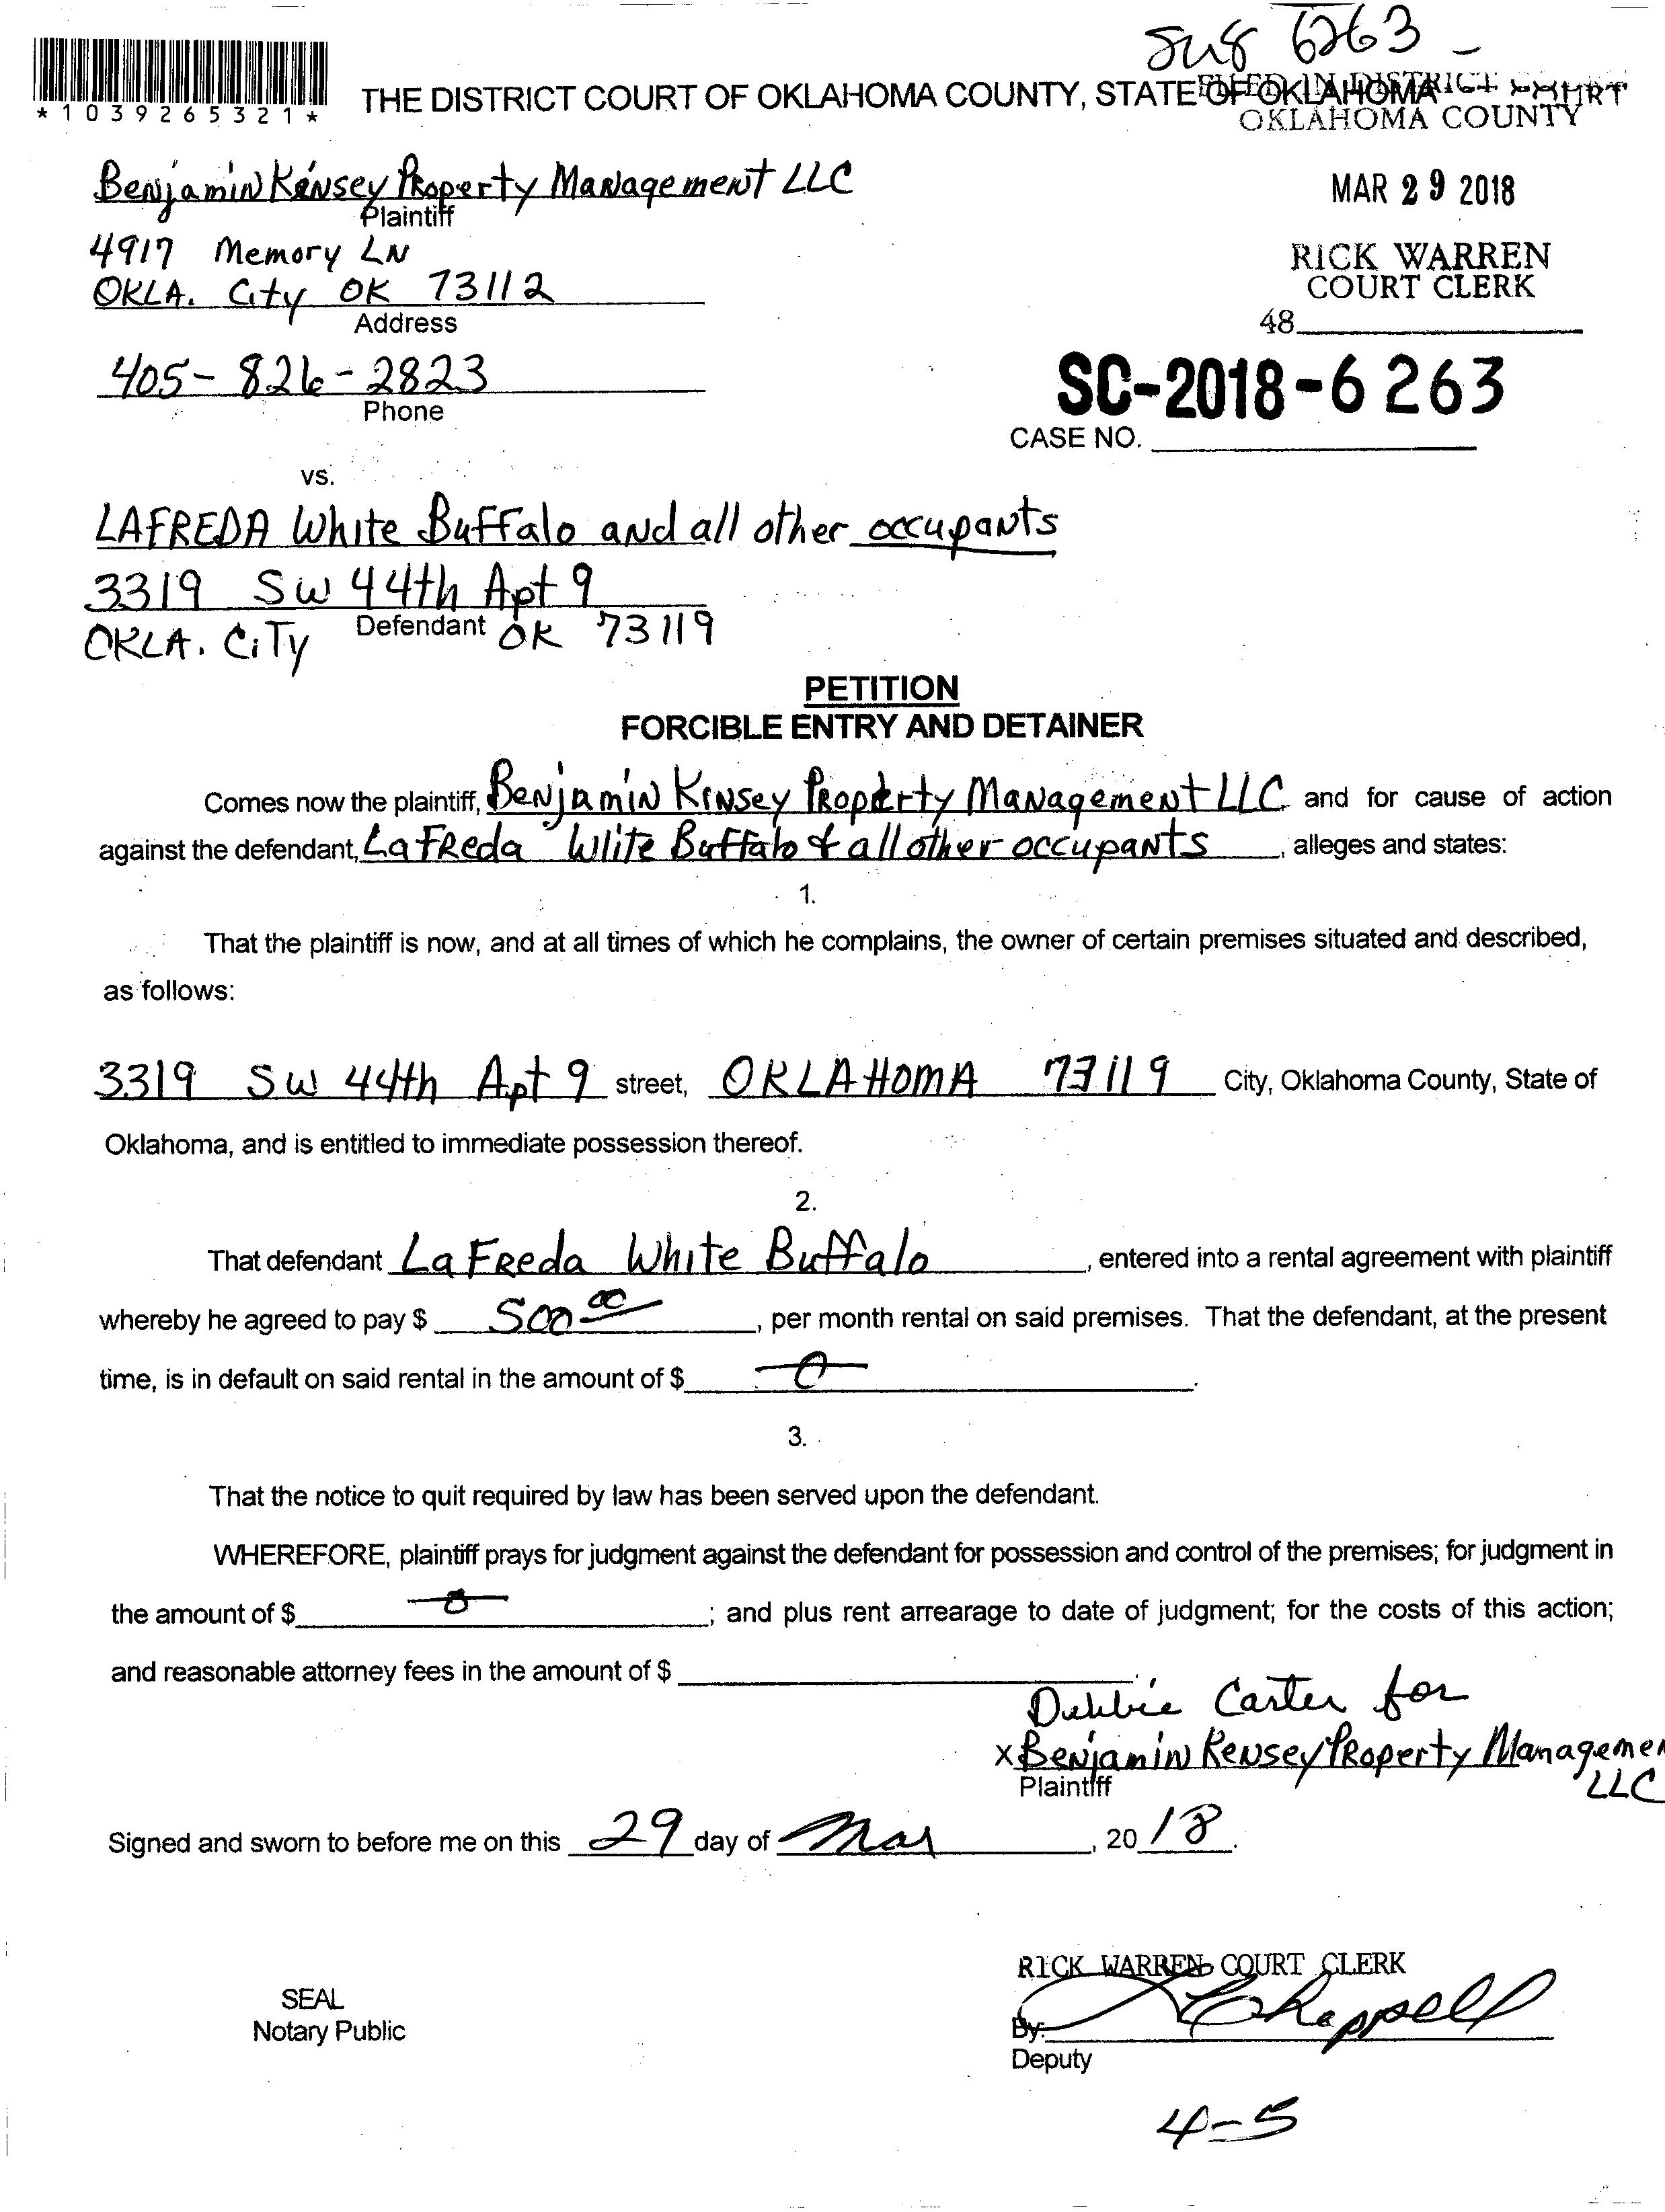 Su8 6263 -
*1039265321*
THE DISTRICT COURT OF OKLAHOMA COUNTY, STATE OF OKLAHOMA
FILED IN DISTRICT COURT
OKLAHOMA COUNTY
Benjamin Kinsey Property Management LLC
Plaintiff
MAR 29 2018
4917 Memory LN
RICK WARREN
OKLA. City OK 73112
COURT CLERK
Address
48
405-826-2823
SC-2018-6263
Phone
CASE NO.
vs.
LAFREDA White Buffalo and all other occupants
3319 SW 44th Apt 9
Defendant
OKLA. CiTy OK 73119
PETITION
FORCIBLE ENTRY AND DETAINER
Comes now the plaintiff, Benjamin Kinsey Property Management LLC and for cause of action
against the defendant, LaFreda Wlite Buffalo & all other occupants, alleges and states:
1.
That the plaintiff is now, and at all times of which he complains, the owner of certain premises situated and described,
as follows:
3319 SW 44th Apt 9 street, OKLAHOMA 73119 City, Oklahoma County, State of
Oklahoma, and is entitled to immediate possession thereof.
2.
That defendant LaFreda White Buffalo, entered into a rental agreement with plaintiff
whereby he agreed to pay $ 500 00, per month rental on said premises. That the defendant, at the present
time, is in default on said rental in the amount of $ 0.
3.
That the notice to quit required by law has been served upon the defendant.
WHEREFORE, plaintiff prays for judgment against the defendant for possession and control of the premises; for judgment in
the amount of $ 0; and plus rent arrearage to date of judgment; for the costs of this action;
and reasonable attorney fees in the amount of $
Debbie Carter for
x Benjamin Kensey Property Managemen
Plaintiff
LLC
Signed and sworn to before me on this 29 day of Mar, 2018.
RICK WARREN COURT CLERK
SEAL
Notary Public
By: Chappell
Deputy
4-5